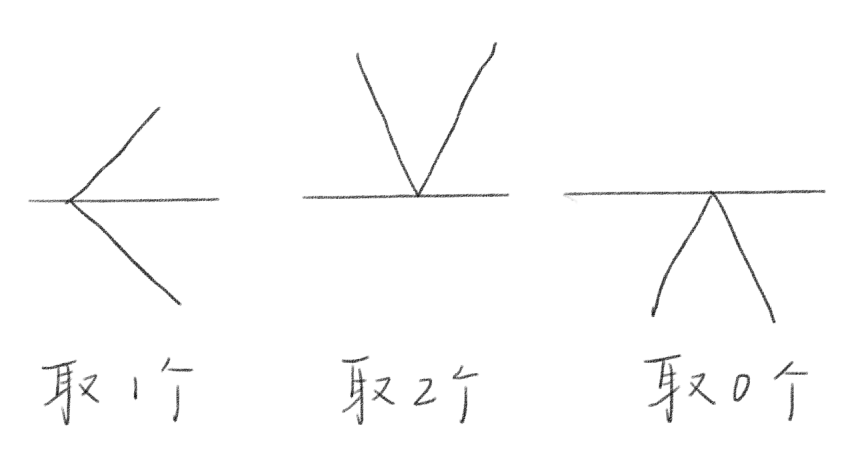 取1个 取2个 取0个